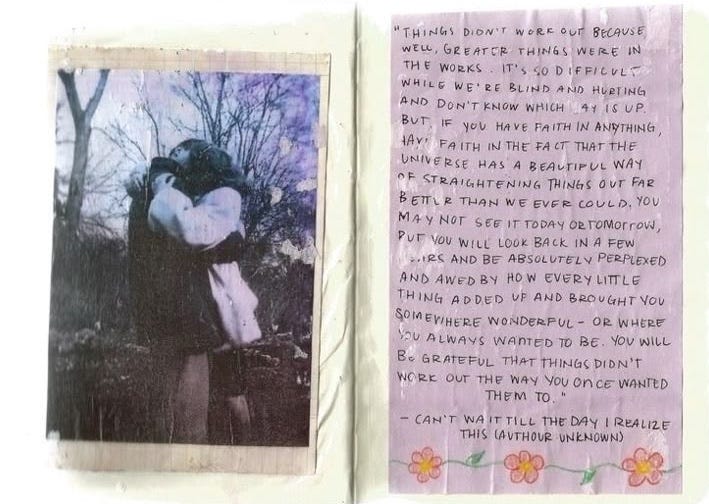 "THINGS DIDN'T WORK OUT BECAUSE
WELL, GREATER THINGS WERE IN
THE WORKS. IT'S SO DIFFICULT
WHILE WE'RE BLIND AND HURTING
AND DON'T KNOW WHICH AY IS UP.
BUT, IF YOU HAVE FAITH IN ANYTHING,
HAVE FAITH IN THE FACT THAT THE
UNIVERSE HAS A BEAUTIFUL WAY
OF STRAIGHTENING THINGS OUT FAR
BETTER THAN WE EVER COULD. YOU
MAY NOT SEE IT TODAY OR TOMORROW,
BUT YOU WILL LOOK BACK IN A FEW
AND BE ABSOLUTELY PERPLEXED
AND AWED BY HOW EVERY LITTLE
THING ADDED UP AND BROUGHT YOU
SOMEWHERE WONDERFUL - OR WHERE
YOU ALWAYS WANTED TO BE. YOU WILL
BE GRATEFUL THAT THINGS DIDN'T
WORK OUT THE WAY YOU ONCE WANTED
THEM TO."
- CAN'T WAIT TILL THE DAY I REALIZE
THIS (AUTHOUR UNKNOWN)